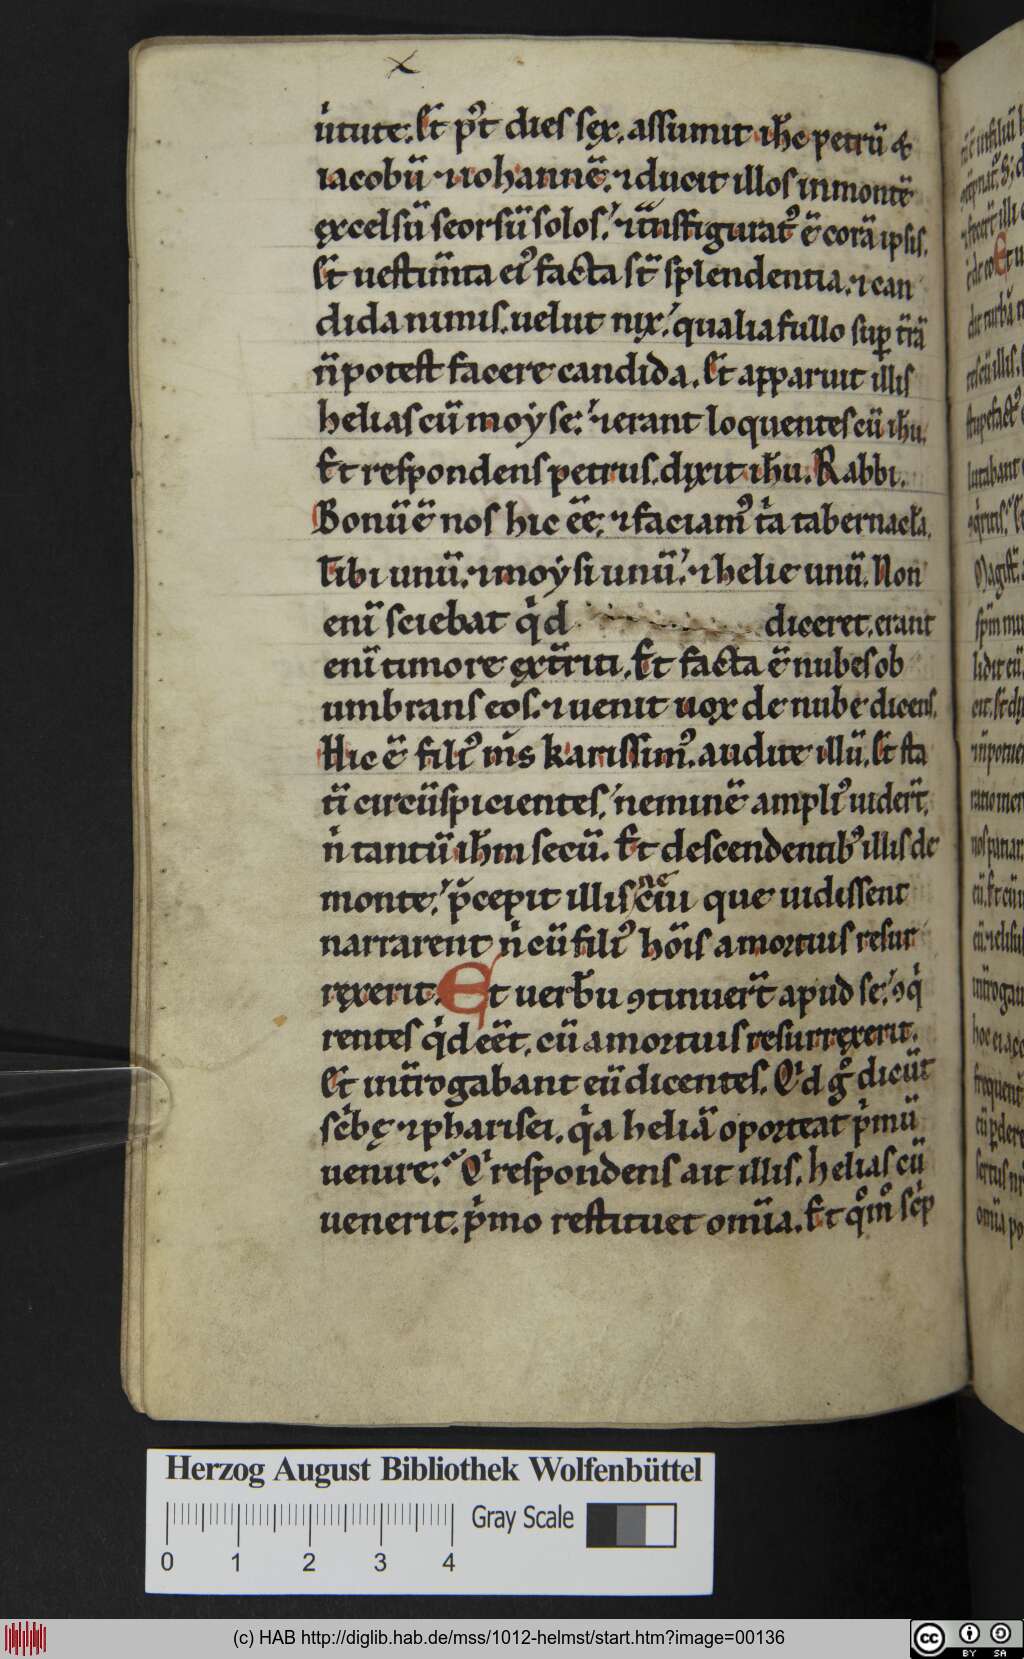 ıͥtute. Et pͦt dies sex. assumit ih̄c petrū &
iacobū ⁊ iohannē. ⁊ ducit illos in montē
excelsū seorsū solos. ⁊ tͣnsfiguratꝰ ē corā ipsis.
Et uestim̄ta eiꝰ facta st̄ splendentia. ⁊ can
dida nimis. uelut nix. qualia fullo suꝑ tr̄ā
n̄ potest facere candida. Et apparuit illis
helias cū moẏse. ⁊ erant loquentes cū ih̄u.
Et respondens petrus. dixit ih̄u. Rabbi.
Bonū ē nos hic ēē. ⁊ faciamꝰ tͥa tabernacl̄a.
Tibi unū. ⁊ moẏsi unū. ⁊ helie unū. Non
enī sciebat qͥd diceret. erant
enī timore ext̄riti. Et facta ē nubes ob
umbrans eos. ⁊ uenit uox de nube dicens.
Hic ē filiꝰ m̄s karissimꝰ. audite illū. Et sta
tī circūspicientes. neminē ampliꝰ uider̄t.
nͥ tantū ih̄m secū. Et descendentibꝰ illis de
monte. p̄cepit illis ne cͥui que uidissent
narrarent nͥ cū filiꝰ hōis a mortuis resur
rexerit. Et uerbū ꝯtinuer̄t apud se. ꝯqͥ
rentes qͥd eēt. cū a mortuis resurrexerit.
Et int̄rogabant eū dicentes. Qͥd gͦ dicūt
scͥbę ⁊ pharisei. qͥa heliā oporteat pͥmū
uenire. Qͥ respondens ait illis. helias cū
uenerit. pͥmo restituet om̄ia. Et qͦmͦ scͥp
Herzog August Bibliothek Wolfenbüttel
Gray Scale
0 1 2 3 4
(c) HAB http://diglib.hab.de/mss/1012-helmst/start.htm?image=00136
cc BY SA